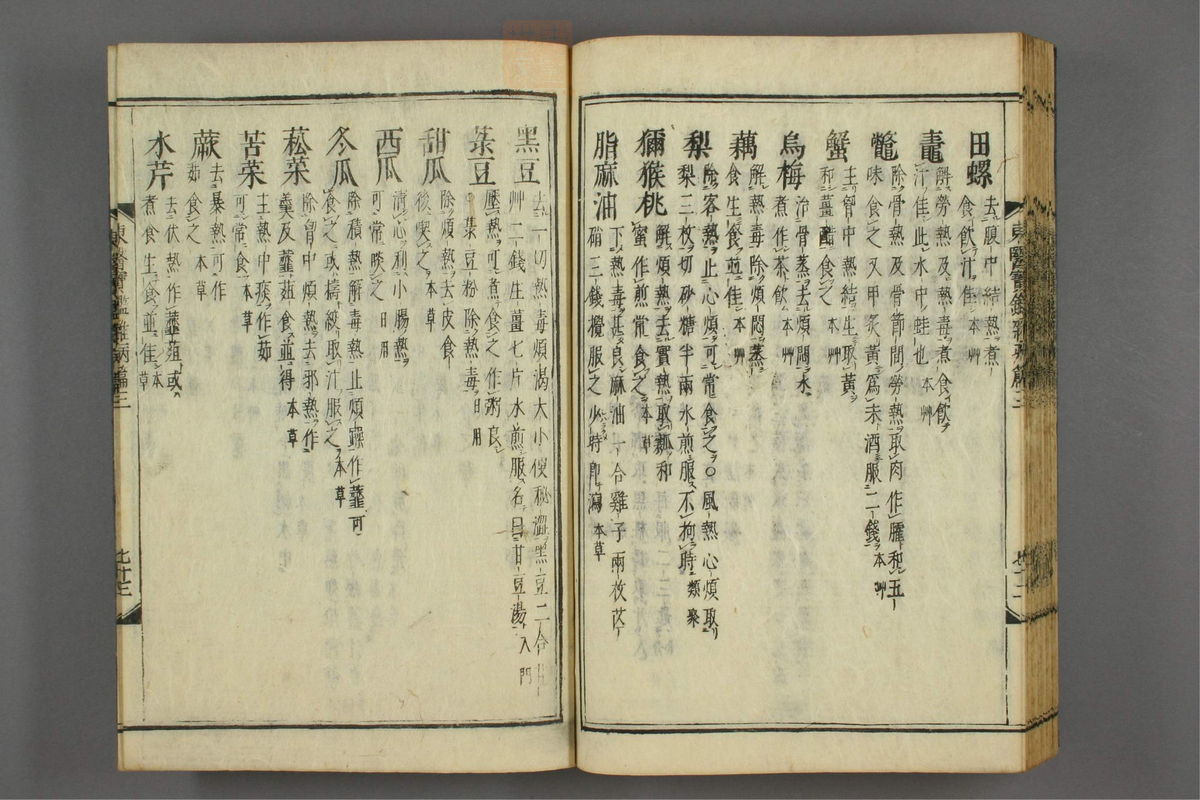 田螺
去腹中結熱煮
食飲汁佳 本艸
鼃
解勞熱及熱毒煮食飲
汁佳此水中蛙也 本艸
鼈
除骨熱及骨節間勞熱取肉作臛和五
味食之又甲炙黃爲末酒服二錢 本艸
蟹
主胷中熱結生取黃
和薑醋食之 本艸
烏梅
治骨蒸去煩悶水
煮作茶飮 本艸
藕
解熱毒除煩悶蒸
食生食並佳 本艸
梨
除客熱止心煩可常食之○風熱心煩取
梨三枚切砂糖半兩水煎服不拘時 類聚
獼猴桃
解煩熱去實熱取瓤和
蜜作煎常食之 本艸
脂麻油
下熱毒甚良麻油一合雞子兩枚芒
硝三錢攪服之少時卽瀉 本草
東醫寶鑑雜病篇三
七十二
黑豆
去一切熱毒煩渴大小便秘澀黑豆二合甘
艸二錢生薑七片水煎服名曰甘豆湯 入門
菉豆
壓熱可煮食之作粥良
集豆粉除熱毒 日用
甜瓜
除煩熱去皮食
後喫之 本草
西瓜
淸心利小腸熱
可常啖之 日用
冬瓜
除積熱解毒熱止煩躁作虀可
食之或擣絞取汁服之 本草
菘菜
除胷中煩熱去邪熱作
羹及虀葅食並得 本草
苦菜
主熱中痰作茹
可常食 本草
蕨
去暴熱可作
茹食之 本草
水芹
去伏熱作虀葅或
煮食生食並佳 本草
東醫寶鑑雜病篇三
七十三